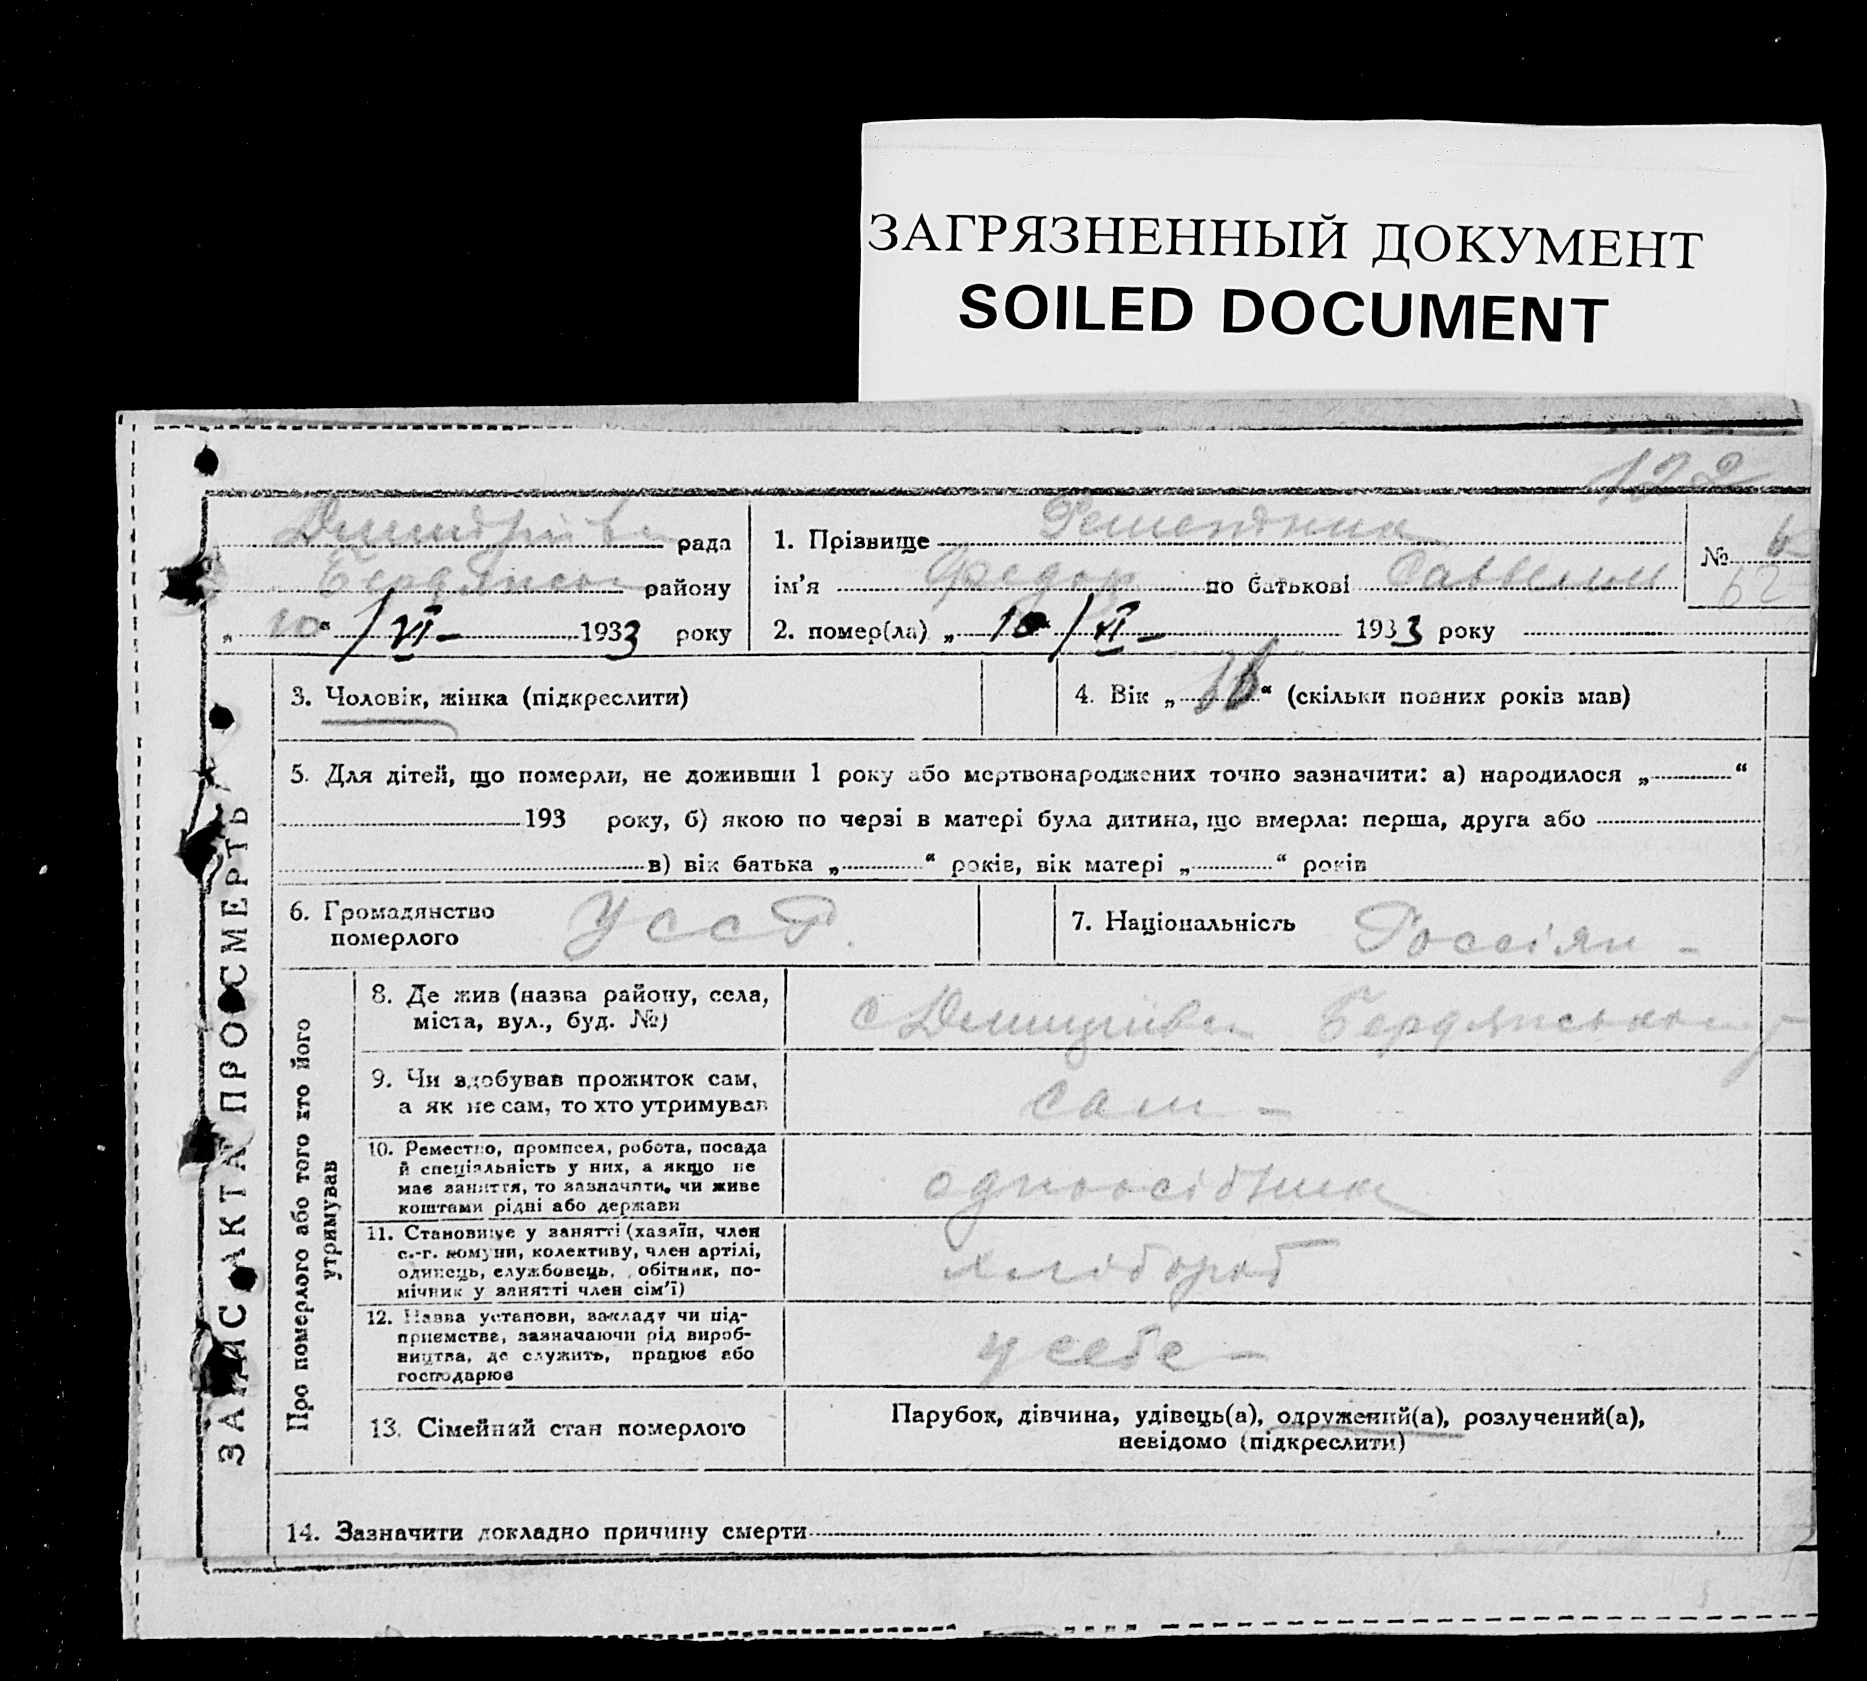 ЗАГРЯЗНЕННЫЙ ДОКУМЕНТ
SOILED DOCUMENT
122
рада
району
„ 10 “ / VI – 1933 року
1. Прізвище
ім’я Федор по батькові
2. помер(ла) „ 10 “ / VI – 1933 року
№
62
ЗАПИС АКТА ПРО СМЕРТЬ
3. Чоловік, жінка (підкреслити)
4. Вік „ “ (скільки повних років мав)
5. Для дітей, що померли, не доживши 1 року або мертвонароджених точно зазначити: а) народилося „ “
193 року, б) якою по черзі в матері була дитина, що вмерла: перша, друга або
в) вік батька „ “ років, вік матері „ “ років
6. Громадянство
померлого
УССР.
7. Національність Россіян –
Про померлого або того хто його
утримував
8. Де жив (назва району, села,
міста, вул., буд. №)
с Бердянського
9. Чи здобував прожиток сам,
а як не сам, то хто утримував
сам –
10. Ремество, промисел, робота, посада
й спеціяльність у них, а якщо не
має заняття, то зазначити, чи живе
коштами рідні або держави
одноосібник
11. Становище у занятті (хазяїн, член
с.-г. комуни, колективу, член артілі,
одинець, службовець, обітник, по-
мічник у занятті член сім’ї)
хлібороб
12. Назва установи, закладу чи під-
приємства, зазначаючи рід вироб-
ництва, де служить, працює або
господарює
у себе –
13. Сімейний стан померлого
Парубок, дівчина, удівець(а), одружений(а), розлучений(а),
невідомо (підкреслити)
14. Зазначити докладно причину смерти